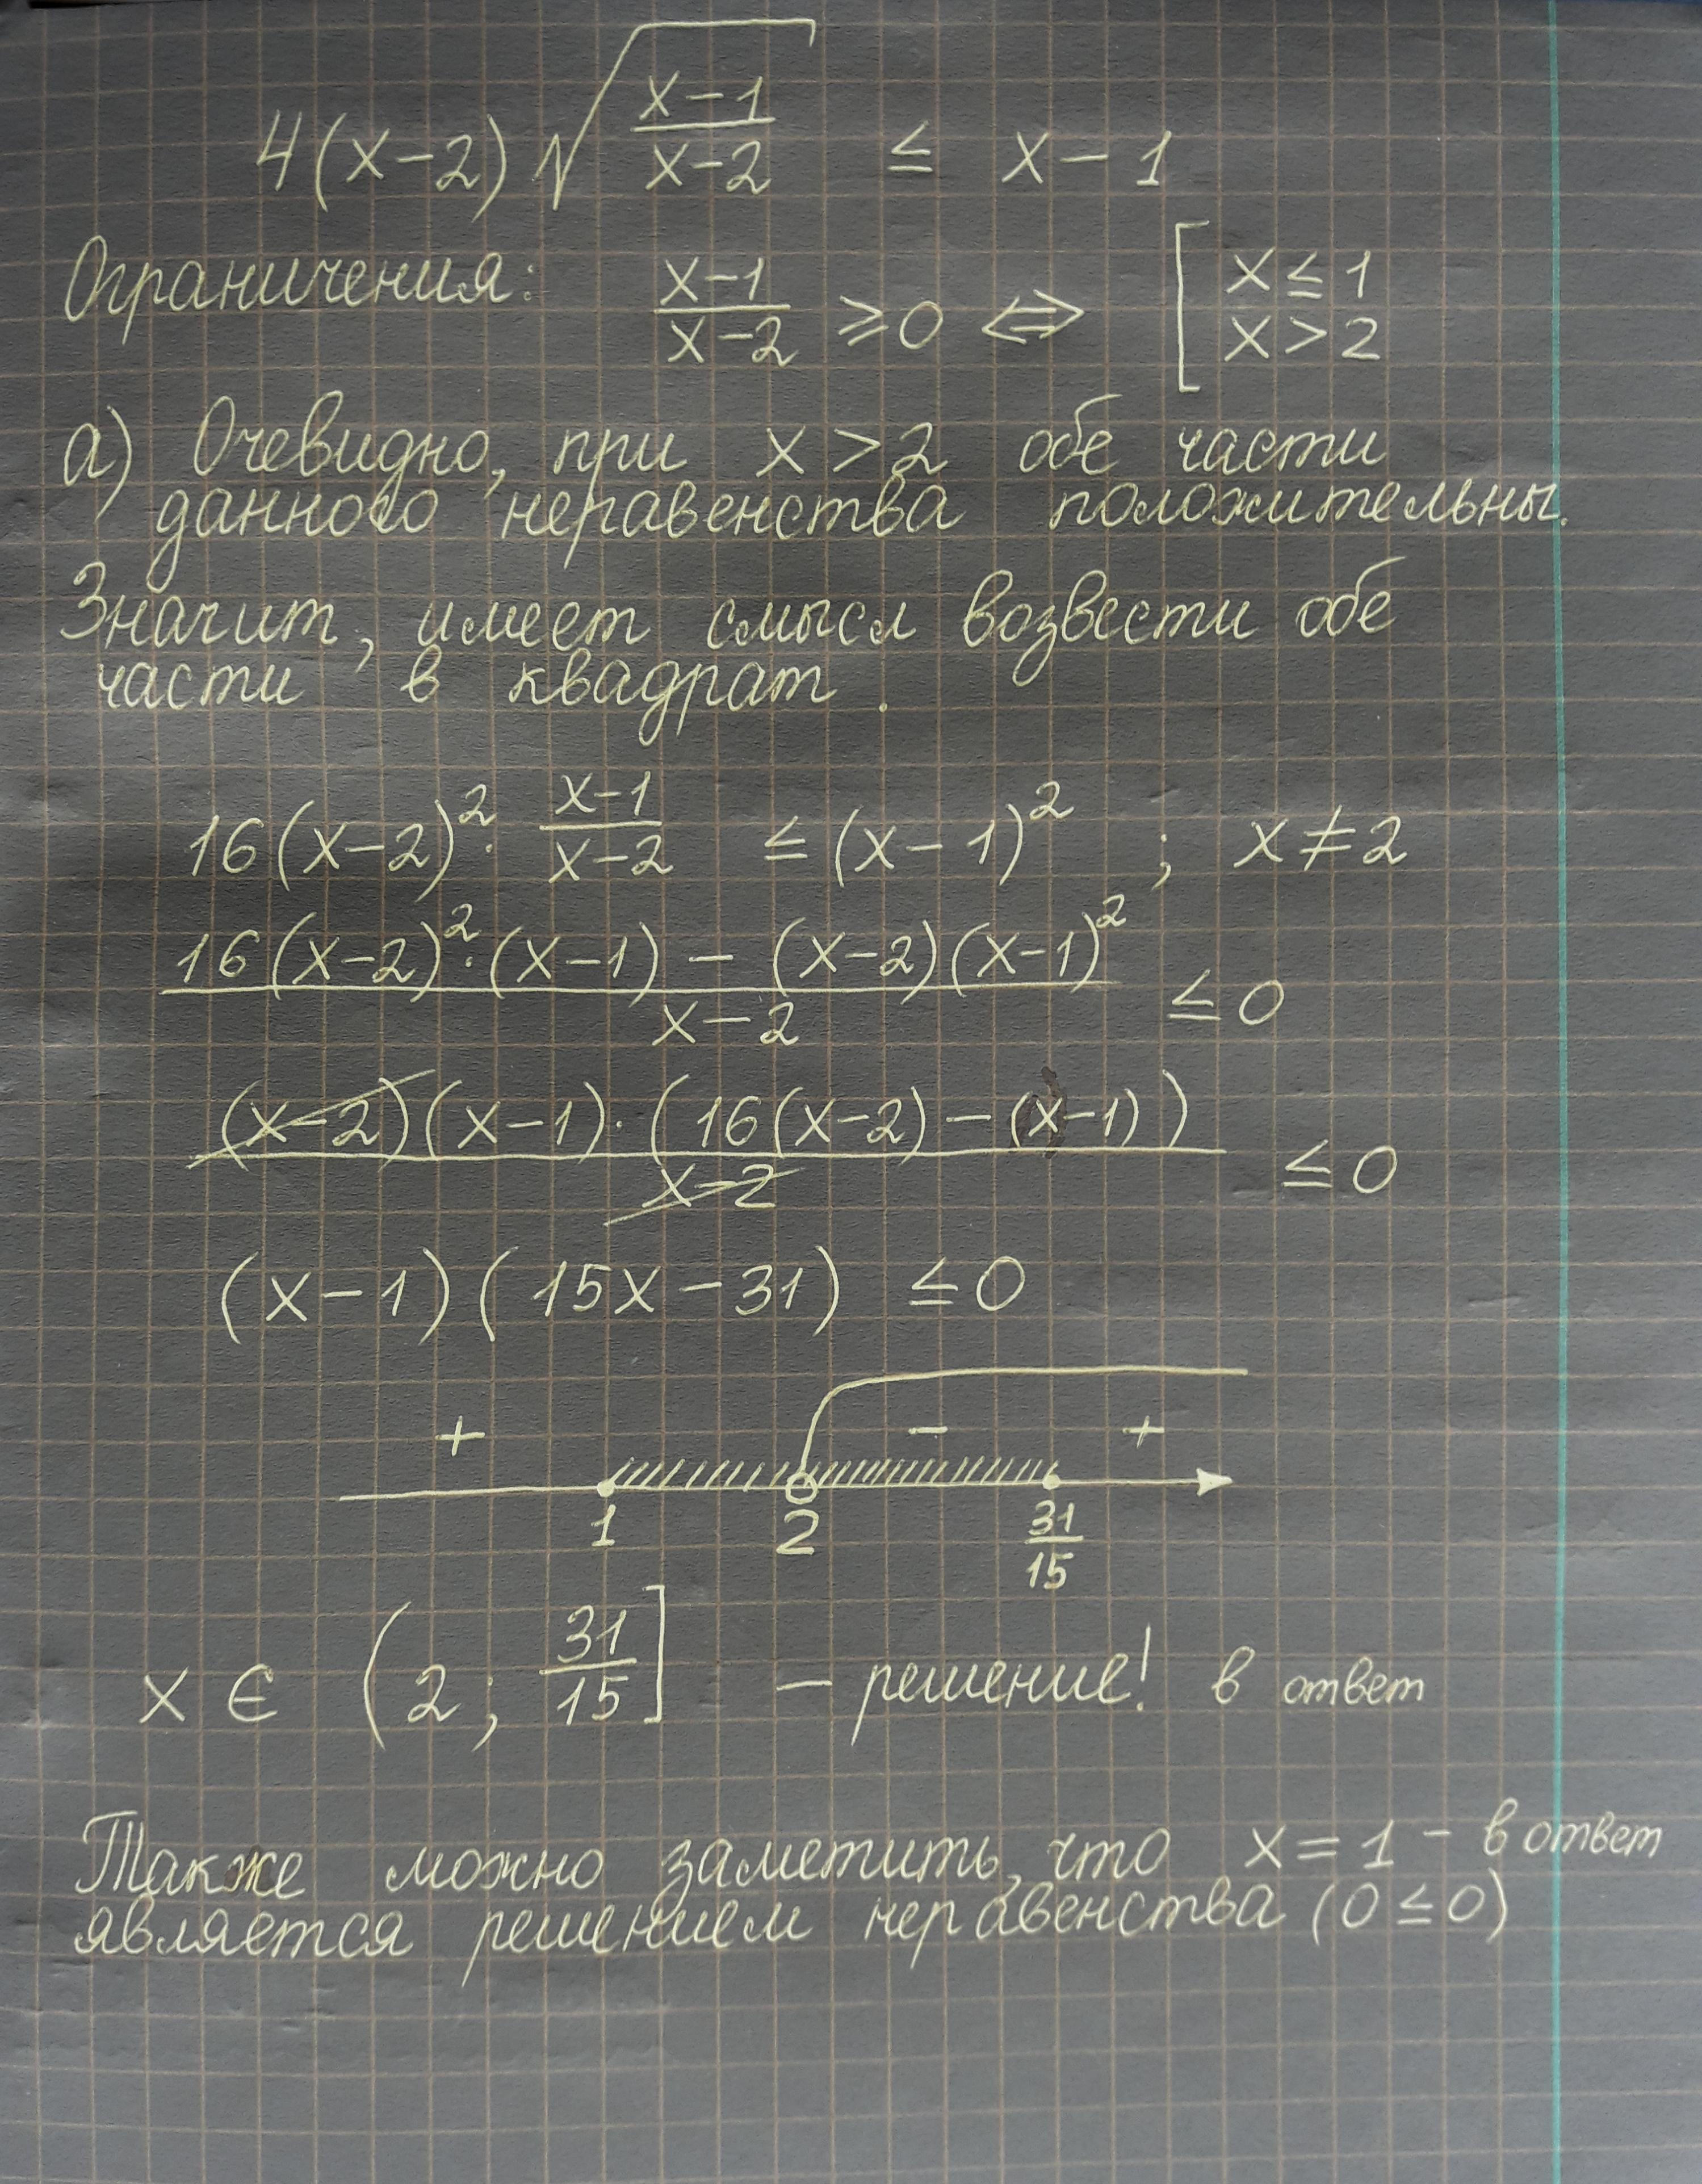 4(x-2)√((x-1)/(x-2)) ≤ x-1
Ограничения: (x-1)/(x-2) ≥ 0 ⇔ [ x ≤ 1
x > 2
а) Очевидно, при x > 2 обе части
данного неравенства положительны.
Значит, имеет смысл возвести обе
части в квадрат.
16(x-2)²· (x-1)/(x-2) ≤ (x-1)² ; x ≠ 2
(16(x-2)²·(x-1) - (x-2)(x-1)²)/(x-2) ≤ 0
((x-2)(x-1)·(16(x-2)-(x-1)))/(x-2) ≤ 0
(x-1)(15x-31) ≤ 0
+ - +
1 2 31/15
x ∈ (2; 31/15] - решение! в ответ
Также можно заметить, что x = 1 - в ответ
является решением неравенства (0 ≤ 0)